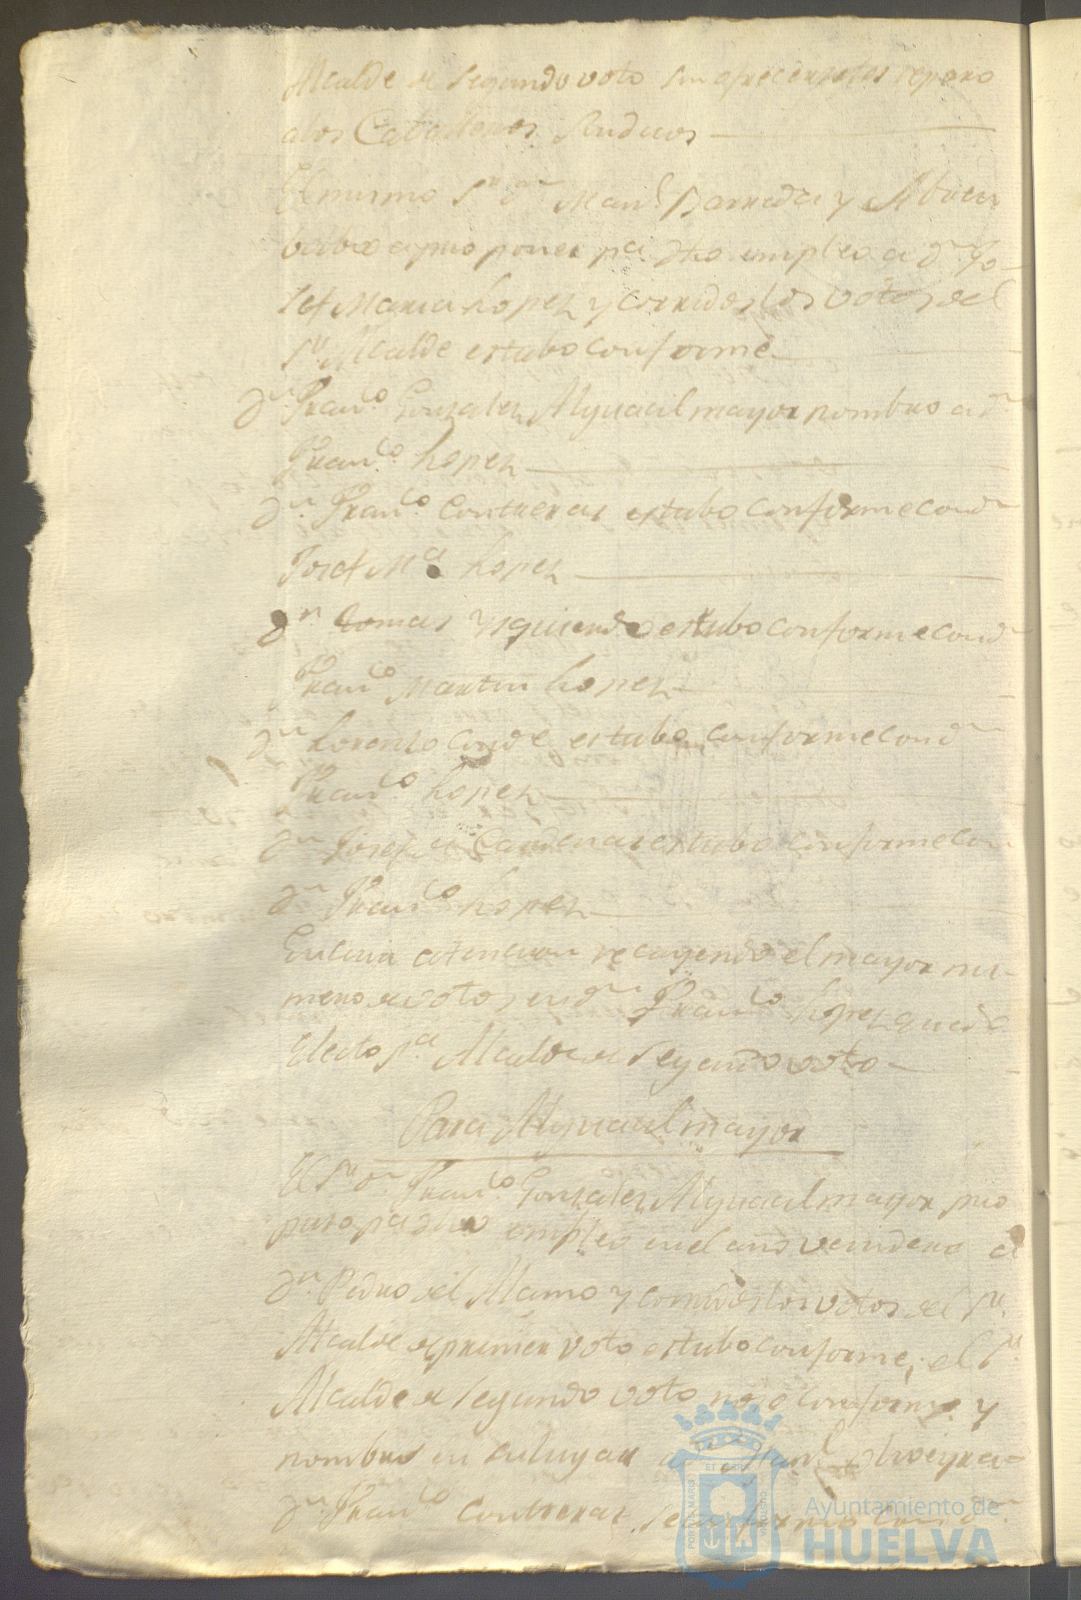 Alcalde de Segundo voto sin ofrecerseles reparo
alos Caballeros Sindicos
El mismo Sr. Dn. Manl. Barreda y
bolvio a proponer pa. dho empleo a Dn. Jo-
sef Maria Lopez y corridos los votos del
Sr. Alcalde estubo conforme
Dn. Franco. Gonzalez Alguacil mayor nombro a Dn.
Franco. Lopez
Dn. Franco. Contreras estubo conforme con Dn.
Josef Ma. Lopez
Dn. Tomas Ysquierdo estubo conforme con Dn.
Franco. Martin Lopez
Dn. Lorenzo Conde estubo conforme con Dn.
Franco. Lopez
Dn. Josef de Cardenas estubo conforme con
Dn. Franco. Lopez
En cuia atencion recayendo el mayor nu-
mero de votos en Dn. Franco. Lopez quedo
Electo pa. Alcalde de Segundo voto
Para Alguacil mayor
El Sr. Dn. Franco. Gonzalez Alguacil mayor pro
puso pa. dho empleo en el año venidero a
Dn. Pedro del Alamo y corridos los votos del Sr.
Alcalde de primer voto estubo conforme; el Sr.
Alcalde de Segundo voto no conforme y
nombro en su lugar a
Dn. Franco. Contreras se conformo con Dn.
Ayuntamiento de
HUELVA